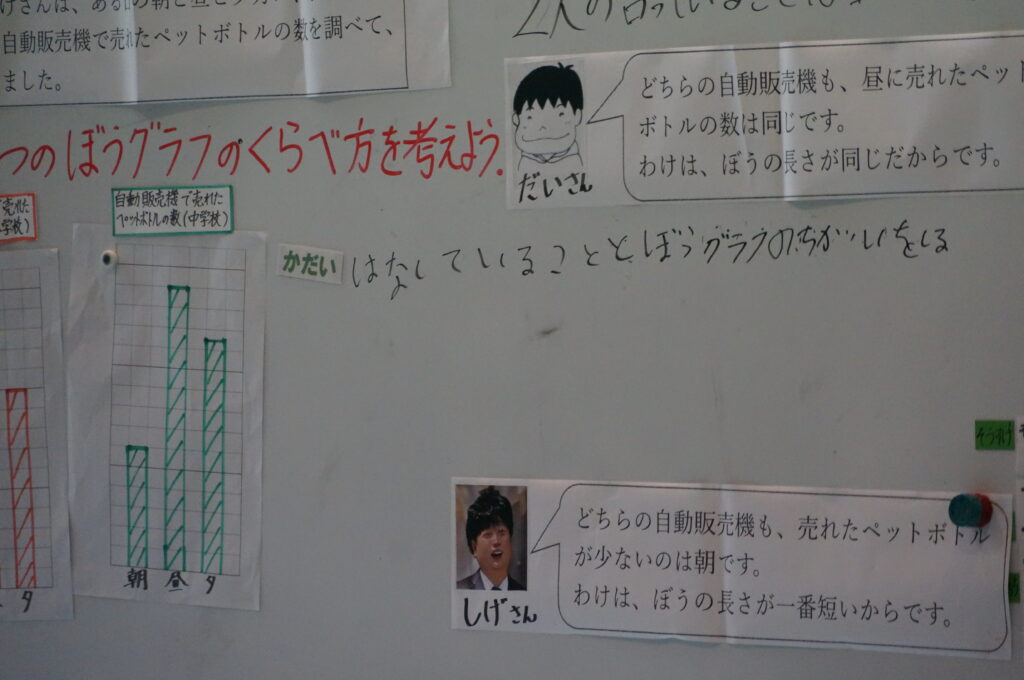 げさんは、ある日の朝と昼と夕方
自動販売機で売れたペットボトルの数を調べて、
ました。
2人の言っていることは
どちらの自動販売機も、昼に売れたペット
ボトルの数は同じです。
わけは、ぼうの長さが同じだからです。
だいさん
つのぼうグラフのくらべ方を考えよう.
売れた
学校)
自動販売機で売れた
ペットボトルの数(中学校)
かだい
はなしていることとぼうグラフのちがいをみる
朝 昼 夕
夕
そう択け
どちらの自動販売機も、売れたペットボトル
が少ないのは朝です。
わけは、ぼうの長さが一番短いからです。
しげさん